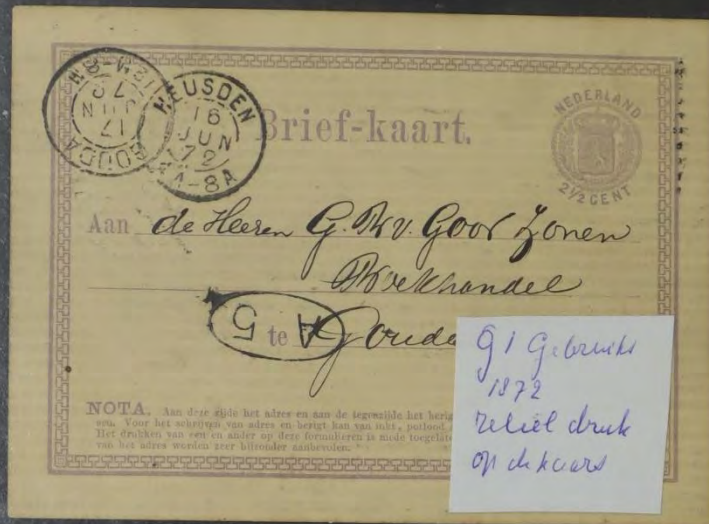 HEUSDEN
16
JUN
72
4A-8A
GOUDA
17
JUN
72
Brief-kaart.
NEDERLAND
2½ CENT
Aan de Heeren G. B. v. Goor Zonen
Boekhandel
te Gouda
A 5
NOTA. Aan deze zijde het adres en aan de tegenzijde het berig
een. Voor het schrijven van adres en berigt kan van inkt, potlood
Het drukken van een en ander op deze formulieren is mede toegelate
van het adres worden zeer bijzonder aanbevolen.
G1 Gebruikt
1872
reliëf druk
op de kaart